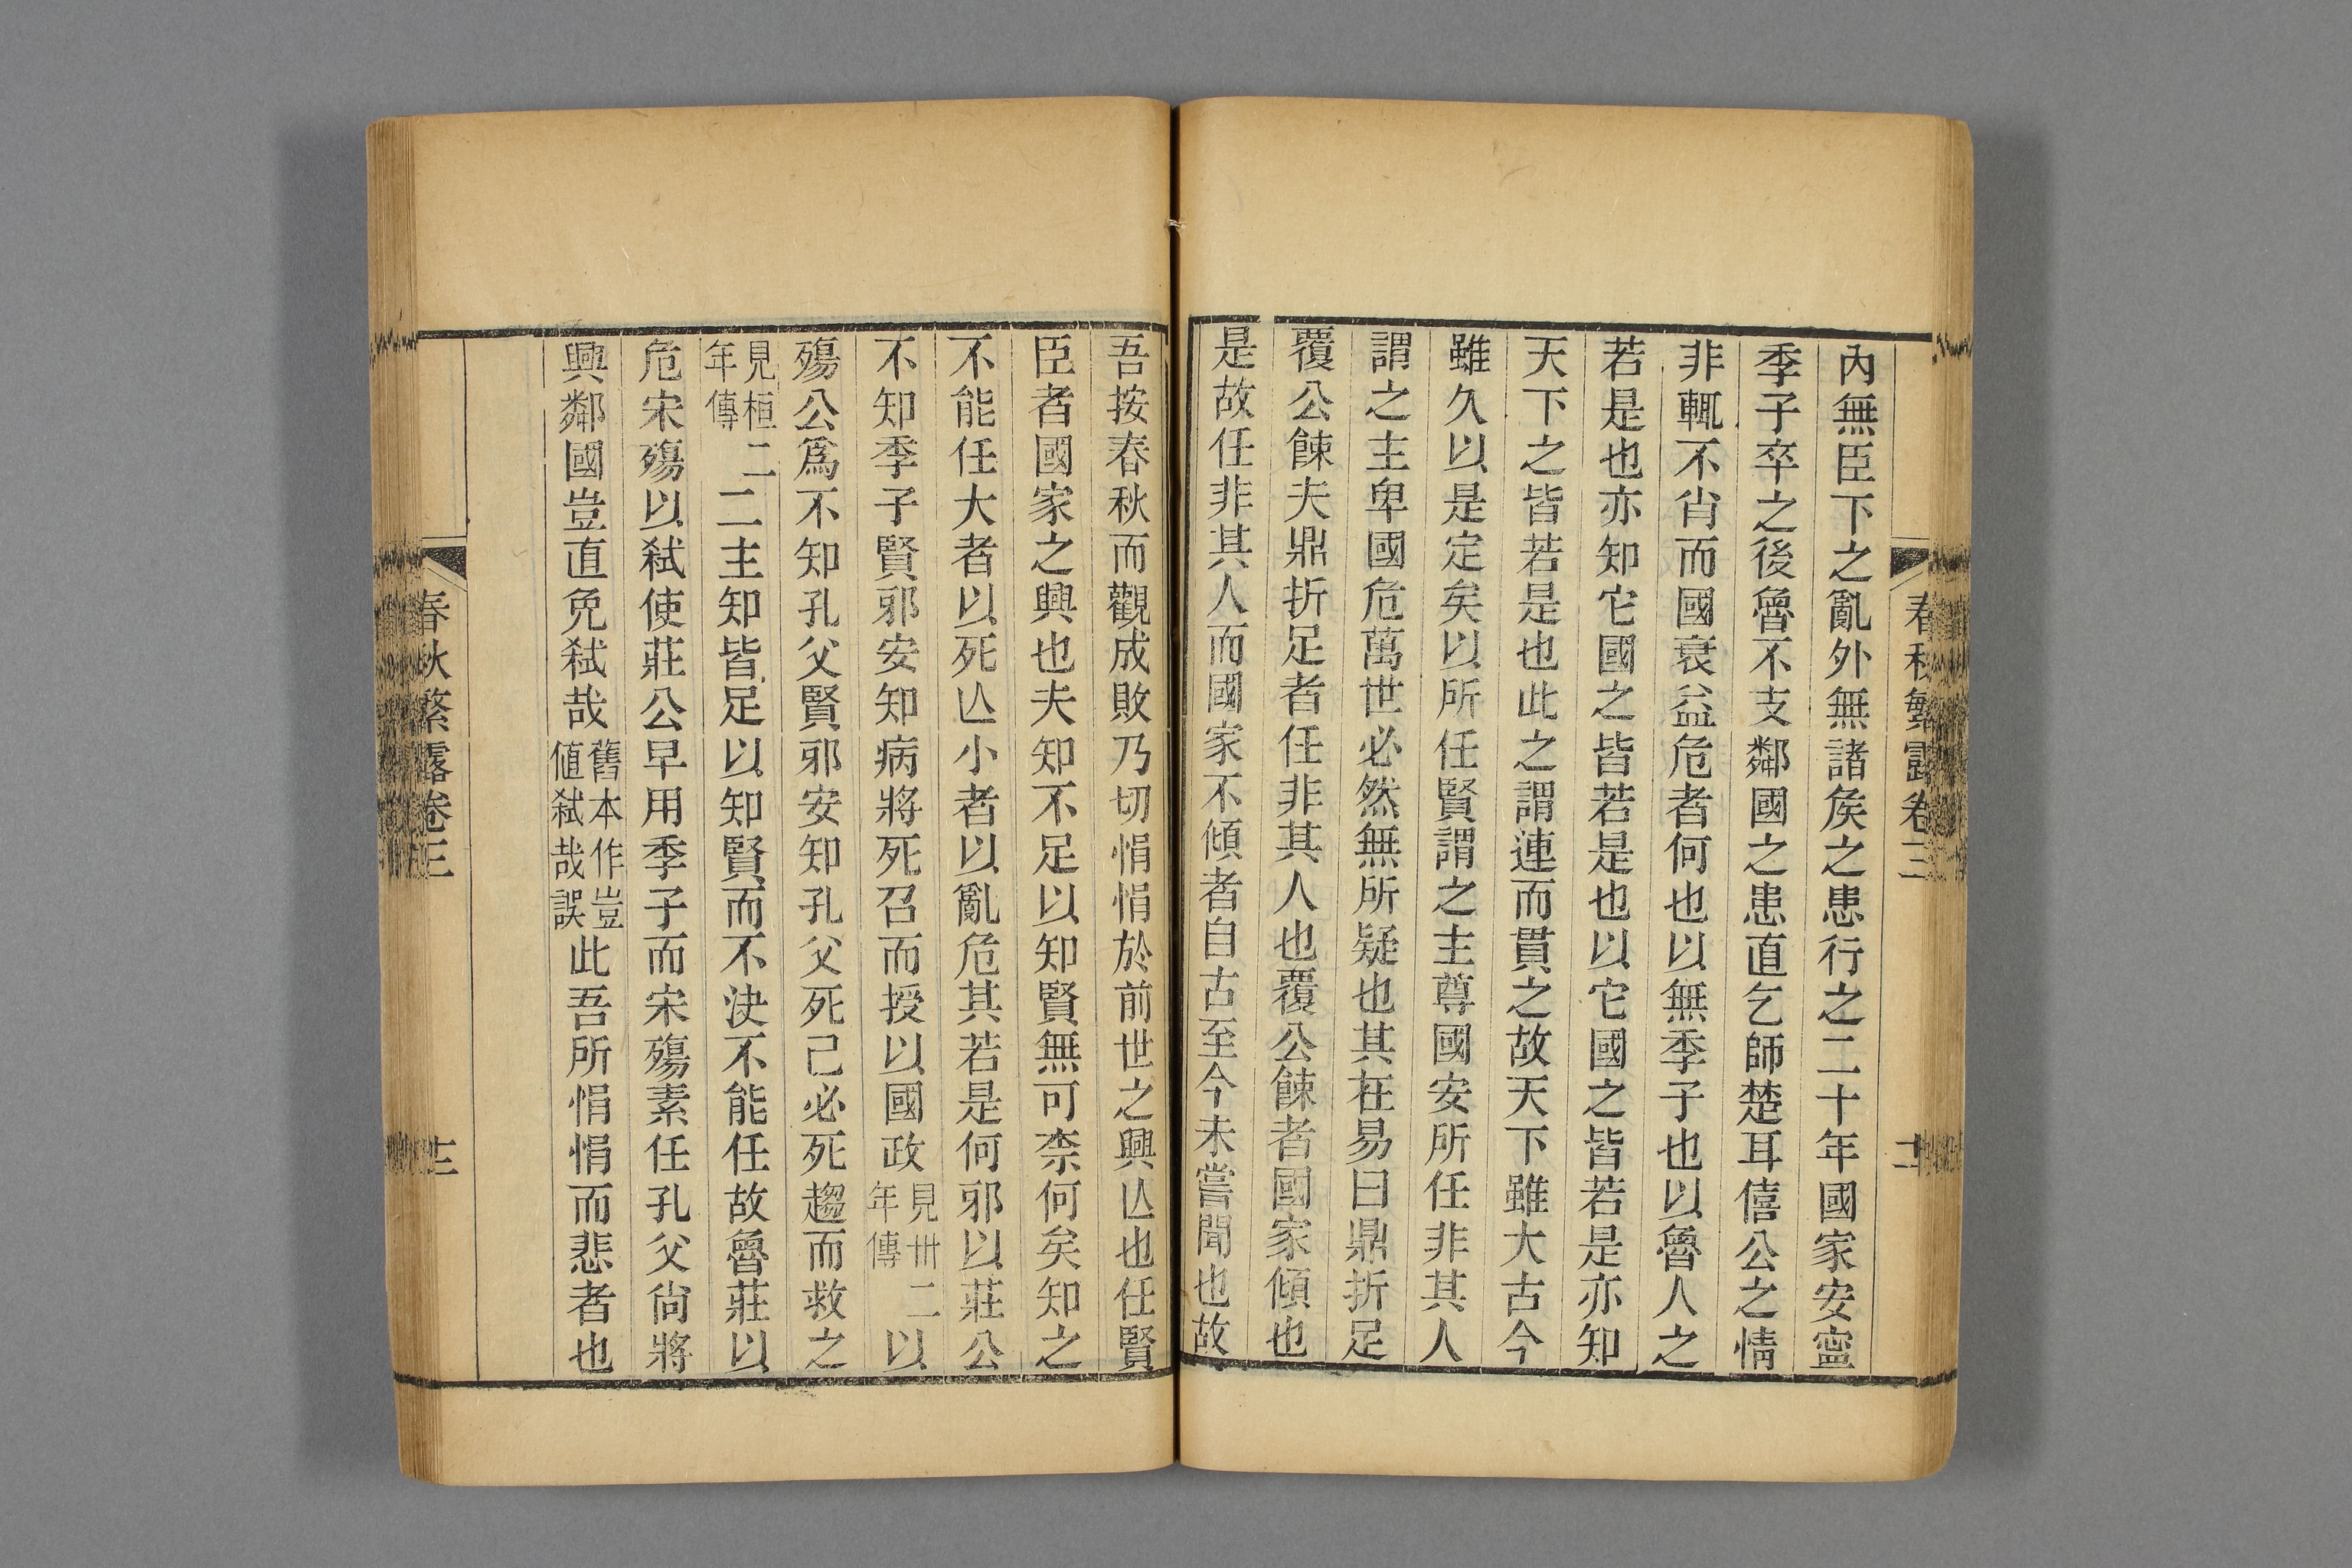 春秋繁露卷三
內無臣下之亂外無諸矦之患行之二十年國家安寍
季子卒之後魯不支鄰國之患直乞師楚耳僖公之情
非輒不肖而國衰益危者何也以無季子也以魯人之
若是也亦知它國之皆若是也以它國之皆若是亦知
天下之皆若是也此之謂連而貫之故天下雖大古今
雖久以是定矣以所任賢謂之主尊國安所任非其人
謂之主卑國危萬世必然無所疑也其在易曰鼎折足
覆公餗夫鼎折足者任非其人也覆公餗者國家傾也
是故任非其人而國家不傾者自古至今未嘗聞也故
吾按春秋而觀成敗乃切悁悁於前世之興亾也任賢
臣者國家之興也夫知不足以知賢無可柰何矣知之
不能任大者以死亾小者以亂危其若是何邪以莊公
不知季子賢邪安知病將死召而授以國政見卅二年傳以
殤公爲不知孔父賢邪安知孔父死己必死趨而救之
見桓二年傳二主知皆足以知賢而不決不能任故魯莊以
危宋殤以弑使莊公早用季子而宋殤素任孔父尙將
興鄰國豈直免弑哉舊本作豈値弑哉誤此吾所悁悁而悲者也
春秋繁露卷三